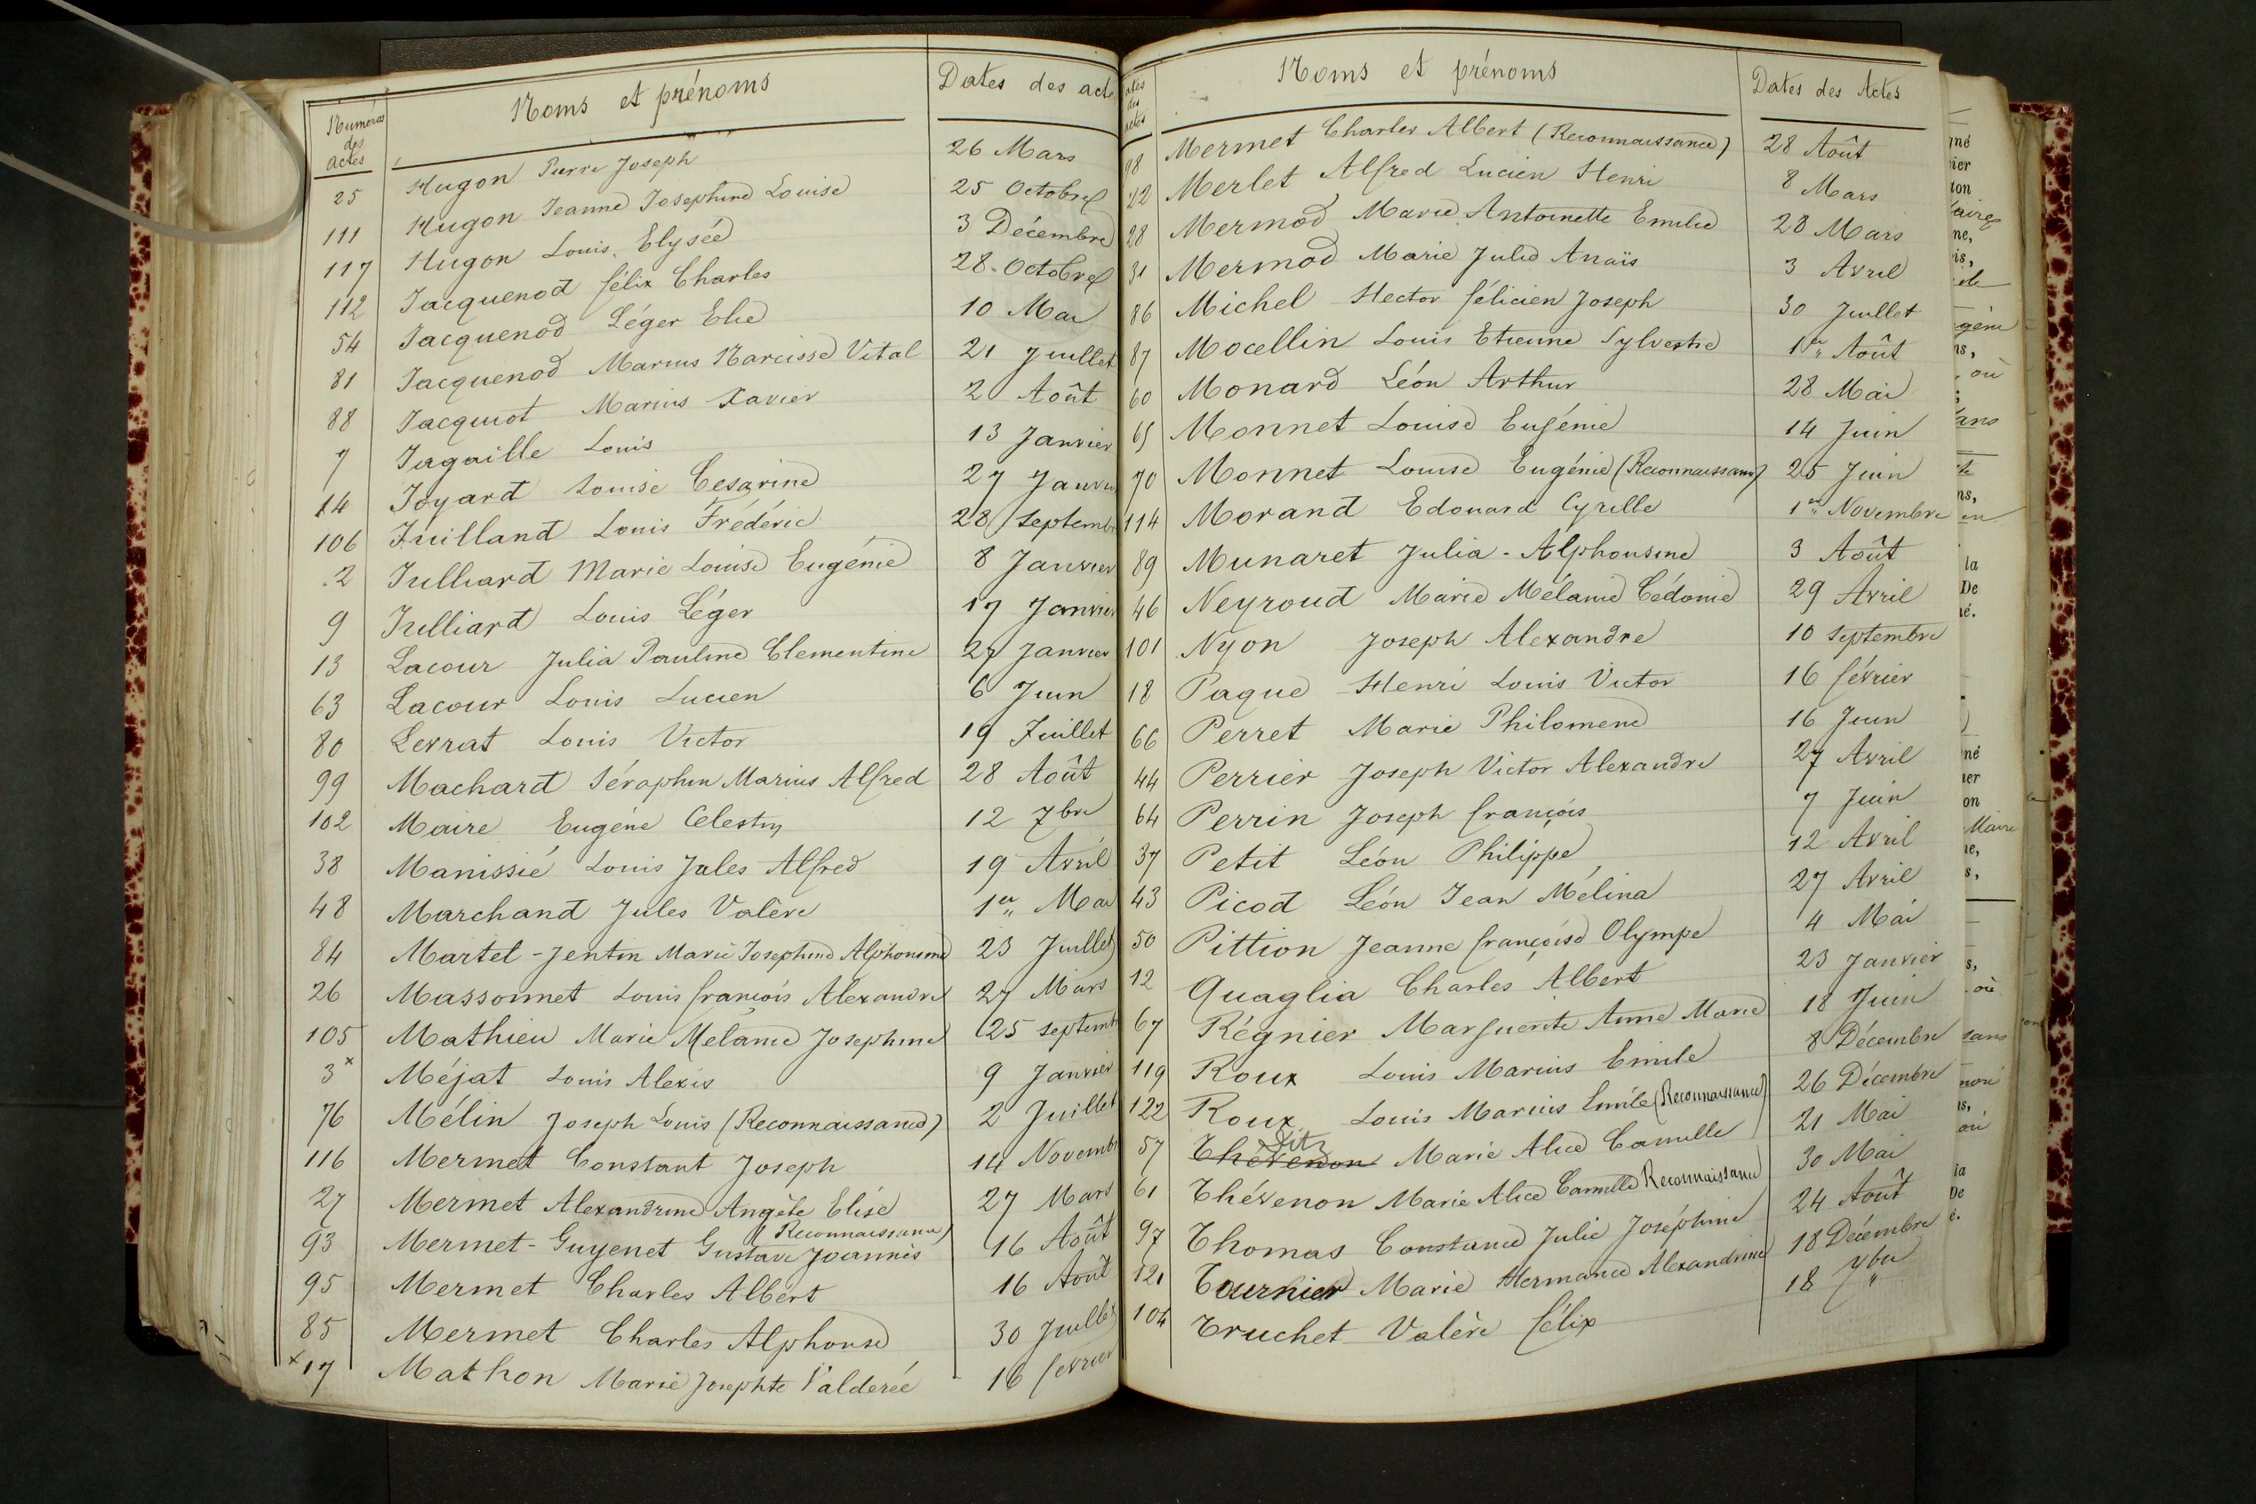 Numéros des actes | Noms et prénoms | Dates des acte
25 | Hugon Pierre Joseph | 26 Mars
111 | Hugon Jeanne Josephine Louise | 25 Octobre
117 | Hugon Louis Elysée | 3 Décembre
112 | Jacquenod félix Charles | 28 Octobre
54 | Jacquenod Léger Elie | 10 Mai
81 | Jacquenod Marius Narcisse Vital | 21 Juillet
88 | Jacquiot Marius Xavier | 2 Août
7 | Jagaille Louis | 13 Janvier
14 | Joyard Louise Cesarine | 27 Janvier
106 | Juilland Louis Frédéric | 28 Septemb
2 | Julliard Marie Louise Eugénie | 8 Janvier
9 | Julliard Louis Léger | 17 Janvier
13 | Lacour Julia Pauline Clementine | 27 Janvier
63 | Lacour Louis Lucien | 6 Juin
80 | Levrat Louis Victor | 19 Juillet
99 | Machard Séraphin Marius Alfred | 28 Août
102 | Maire Eugéne Celestin | 12 7bre
38 | Manissié Louis Jules Alfred | 19 Avril
48 | Marchand Jules Valère | 1er Mai
84 | Martel-Jentin Marie Josephine Alphonsine | 23 Juillet
26 | Massonnet Louis françois Alexandre | 27 Mars
105 | Mathieu Marie Mélanie Josephine | 25 septemb
3x | Méjat Louis Alexis | 9 Janvier
76 | Mélin Joseph Louis (Reconnaissance) | 2 Juillet
116 | Mermet Constant Joseph | 14 Novemb
27 | Mermet Alexandrine Angèle Elise | 27 Mars
93 | Mermet-Guyenet Gustave Joannès (Reconnaissance) | 16 Août
95 | Mermet Charles Albert | 16 Aout
85 | Mermet Charles Alphonse | 30 Juillet
x17 | Mathon Marie Josephte Valderée | 16 fevrier
des actes | Noms et prénoms | Dates des Actes
98 | Mermet Charles Albert (Reconnaissance) | 28 Août
22 | Merlet Alfred Lucien Henri | 8 Mars
28 | Mermod Marie Antoinette Emilie | 28 Mars
31 | Mermod Marie Julie Anaïs | 3 Avril
86 | Michel Hector félicien Joseph | 30 Juillet
87 | Mocellin Louis Etienne Sylvestre | 1er Août
60 | Monard Léon Arthur | 28 Mai
65 | Monnet Louise Eugénie | 14 Juin
70 | Monnet Louise Eugénie (Reconnaissance) | 25 Juin
114 | Morand Edouard Cyrille | 1er Novembre
89 | Munaret Julia-Alphonsine | 3 Août
46 | Neyroud Marie Mélanie Cédonie | 29 Avril
101 | Nyon Joseph Alexandre | 10 septembre
18 | Paque Henri Louis Victor | 16 février
66 | Perret Marie Philomene | 16 Juin
44 | Perrier Joseph Victor Alexandre | 27 Avril
64 | Perrin Joseph françois | 7 Juin
37 | Petit Léon Philippe | 12 Avril
43 | Picod Léon Jean Mélina | 27 Avril
50 | Pittion Jeanne françoise Olympe | 4 Mai
12 | Quaglia Charles Albert | 23 Janvier
67 | Régnier Marguerite Anne Marie | 18 Juin
119 | Roux Louis Marius Emile | 8 Décembre
122 | Roux Louis Marius Emile (Reconnaissance) | 26 Décembre
57 | Thévenon Marie Alice Camille | 21 Mai
61 | Thévenon Marie Alice Camille Reconnaissance | 30 Mai
97 | Thomas Constance Julie Joséphine | 24 Août
121 | Tournier Marie Hermance Alexandrine | 18 Décembre
104 | Truchet Valère félix | 18 7bre